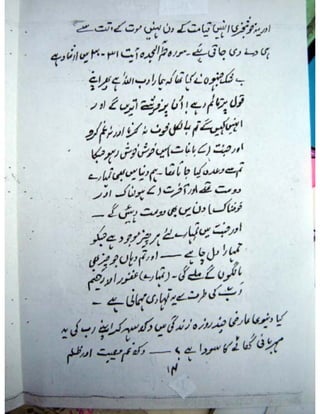 اور یہ خوشخبری انہیں قیامت کے دن نہیں موت کے وقت سے
ہی دے دی جاتی ہے۔ سورہ حم السجدہ آیت ۳۰-۳۱ میں ارشاد ہے
بے شک جنہوں نے کہا تھا کہ ہمارا رب اللہ ہے پھر اپنے
قول پر قائم رہے! اُن پر فرشتے اتریں گے اور
انہیں کہیں گے تم بالکل خوف نہ کرنا اور نہ غم کرو
اور جنت (کے باغات) میں خوش خوش رہو جسکا
تم سے وعدہ کیا جاتا تھا۔ ہم دنیا میں بھی تمہارے
دوست تھے اور آخرت (کے ہولناک اور
خوفناک) دن میں بھی دوست ہیں گے —
اور جنت میں تمہارے لئے ہر چیز موجود ہے جسکو
تمہارا دل چاہے — اور تم وہاں جو چیز بھی
مانگوں گے ملے گی۔ (تمہارے) غفور الرحیم
رب کی طرف سے یہ تمہاری مہمانی ہے۔
کیا دنیوی عارضی چند روزہ زندگی میں دکھ سہہ کر اپنے رب کی یہ
مہربانی گھاٹے کا سودا ہے؟ — دکھ غم مصیبت اور ظلم